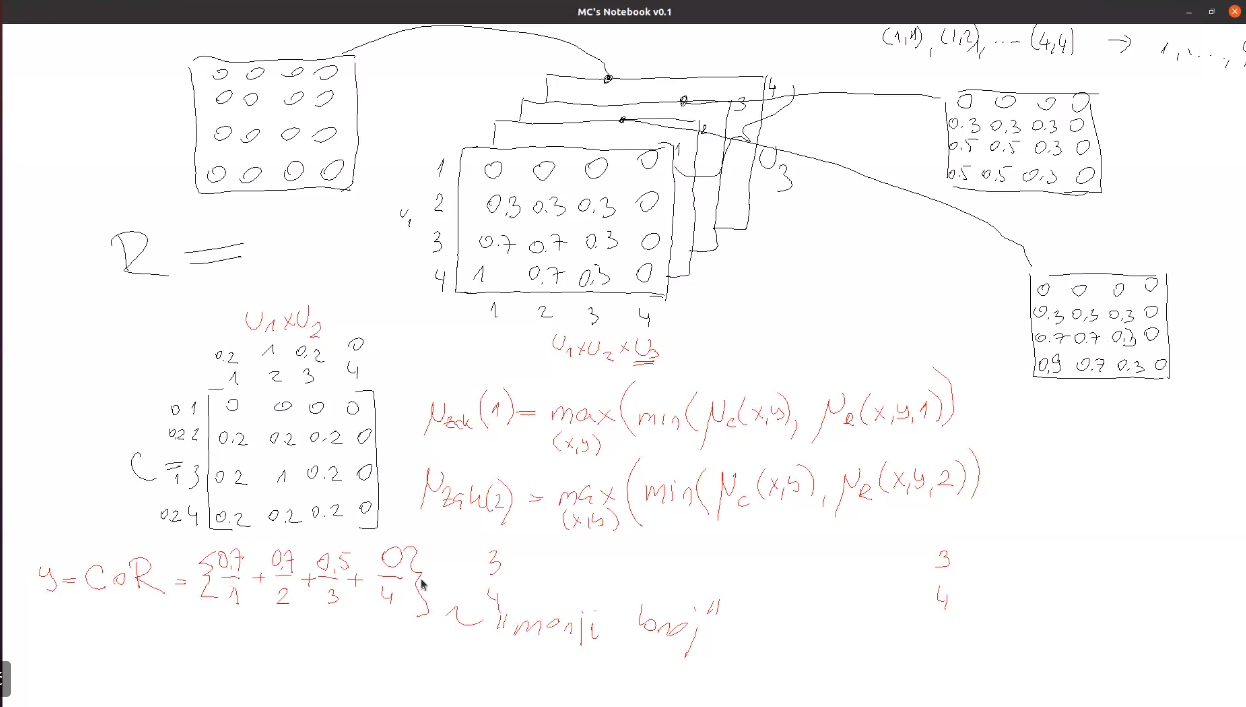 MC's Notebook v0.1
(1,1), (1,2), ... (4,4) → 1, ...,
0 0 0 0
0 0 0 0
0 0 0 0
0 0 0 0
4
3
2
1
U3
1 0 0 0 0
2 0.3 0.3 0.3 0
U1
3 0.7 0.7 0.3 0
4 1 0.7 0.3 0
1 2 3 4
U1 x U2 x U3
0 0 0 0
0.3 0.3 0.3 0
0.5 0.5 0.3 0
0.5 0.5 0.3 0
0 0 0 0
0.3 0.3 0.3 0
0.7 0.7 0.3 0
0.9 0.7 0.3 0
R =
U1 x U2
0.2 1 0.2 0
1 2 3 4
0 1 0 0 0 0
0.2 2 0.2 0.2 0.2 0
C = 1 3 0.2 1 0.2 0
0.2 4 0.2 0.2 0.2 0
μzak(1) = max (min(μC(x,y), μR(x,y,1))
(x,y)
μzak(2) = max (min(μC(x,y), μR(x,y,2))
(x,y)
3 3
4 4
y = C o R = {0.7/1 + 0.7/2 + 0.5/3 + 0/4}
~ "manji broj"